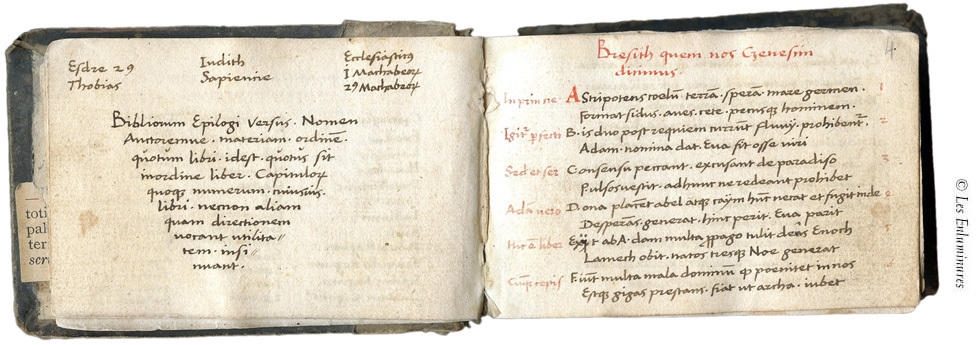 Esdre 29
Thobias
Iudith
Sapientie
Ecclesiasticus
I Machabeoꝝ
29 Machabeoꝝ
Bibliorum Epilogi versus. Nomen
Auctoremue. materiam. ordinē.
quotum libri. idest. quotus sit
in ordine liber. Capituloꝝ
quoqꝫ numerum. cuiusuis.
libri. necnon aliam
quam directionem
vocant utilita//
tem. insi//
nuant.
4.
Bresith quem nos Genesim
dicimus
In princie
AStripotens coelū. terrā. sperā. mare germen.
1
format sidus. aves. rete. hominem.
Igit᷑ pfecti
B. is duo post requiem currūt fluuij. prohibent᷑.
2
Adam. nomina dat. Eua fit osse uiri
Sed et ser
Consensu peccant. excusant de paradiso
3
Pulsos uestit. ad hunc ne redeant prohibet
Adā vero
Dona placēt abel atqꝫ caym hūc necat et fugit inde
Desperās. generat. hinc perit. Eua parit
Hic ā liber
Ex ab A. dam multa ꝓpago tulit Enoch
Lamech obit. natos tresqꝫ Noe generat
Cūqꝫ cepis
Fiūt multa mala dominūqꝫ poenitet in nos
Estqꝫ gigas prestans. fiat ut archa. iubet
toti
pal
ter
scr
© Les Enluminures